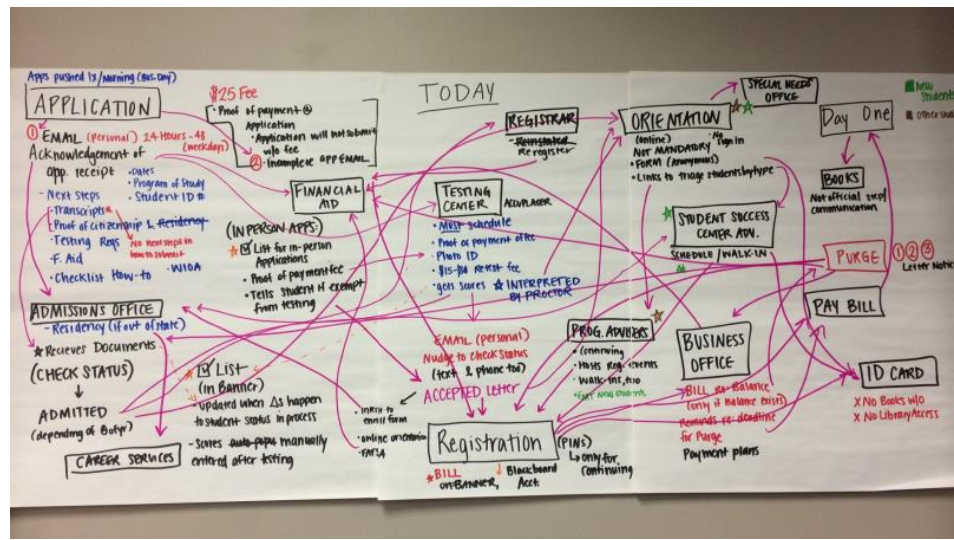 Apps pushed 1x/morning (Bus. Day)
APPLICATION
① EMAIL (personal) 24 Hours - 48
(weekdays)
Acknowledgement of
app. receipt
• Dates
• Program of Study
• Student ID #
- Next Steps
- Transcripts
- Proof of citizenship & Residency
- Testing Reqs
- F. Aid
- Checklist How-to
• WIDA
No next steps in
how to submit
ADMISSIONS OFFICE
- Residency (if out of state)
★ Recieves Documents
(CHECK STATUS)
ADMITTED
(depending of
CAREER SERVICES
$25 Fee
• Proof of payment @
Application
• Application will not submit
w/o fee
② • Incomplete app EMAIL
FINANCIAL
AID
(IN PERSON APPS:)
☑ List for in-person
Applications
• Proof of payment fee
• Tells Student if exempt
from testing
☑ List
(in Banner)
• updated when Δs happen
to student status in process
- Scores auto-popu manually
entered after testing
TODAY
TESTING
CENTER
ACCUPLACER
• Must schedule
• Proof of payment of fee
• Photo ID
retest fee
• gets scores ☆ INTERPRETED
BY PROCTOR
EMAIL (personal)
Nudge to check status
(text & phone too)
ACCEPTED Letter
• intent to
enroll form
• online orientation
• FAFSA
Registration
(PINS)
↳ only for
continuing
★ BILL
on BANNER,
↓ Blackboard
Acct.
REGISTRAR
Reinstated
Re register
ORIENTATION
(online)
• No
Sign in
NOT MANDATORY
• FORM (Anonymous)
• Links to triage students by type
SPECIAL NEEDS
OFFICE
STUDENT SUCCESS
CENTER ADV.
SCHEDULE / WALK-IN
PROG. ADVISERS
• Continuing
• Hosts Reg. events
• Walk-ins, too
New students
BUSINESS
OFFICE
BILL re: Balance
(only if Balance exists)
Reminds re: deadline
for Purge
Payment plans
New
Students
Day One
BOOKS
Not official step/
communication
PURGE ① ② ③
PAY BILL
ID CARD
X No Books w/o
X No Library Access